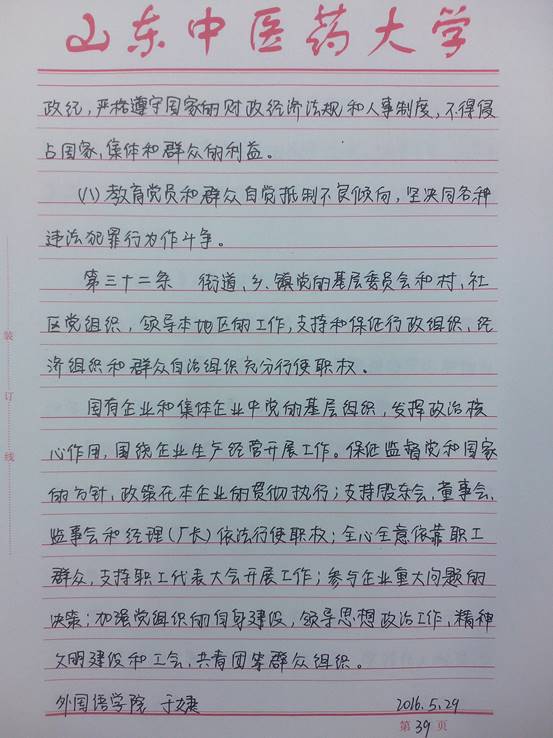 山东中医药大学
政纪,严格遵守国家的财政经济法规和人事制度,不得侵
占国家、集体和群众的利益。
(八)教育党员和群众自觉抵制不良倾向,坚决同各种
违法犯罪行为作斗争。
第三十二条 街道、乡、镇党的基层委员会和村、社
区党组织,领导本地区的工作,支持和保证行政组织、经
济组织和群众自治组织充分行使职权。
国有企业和集体企业中党的基层组织,发挥政治核
心作用,围绕企业生产经营开展工作。保证监督党和国家
的方针、政策在本企业的贯彻执行;支持股东会、董事会、
监事会和经理(厂长)依法行使职权;全心全意依靠职工
群众,支持职工代表大会开展工作;参与企业重大问题的
决策;加强党组织的自身建设,领导思想政治工作、精神
文明建设和工会、共青团等群众组织。
外国语学院 于婕 2016.5.29
第39页
装
订
线